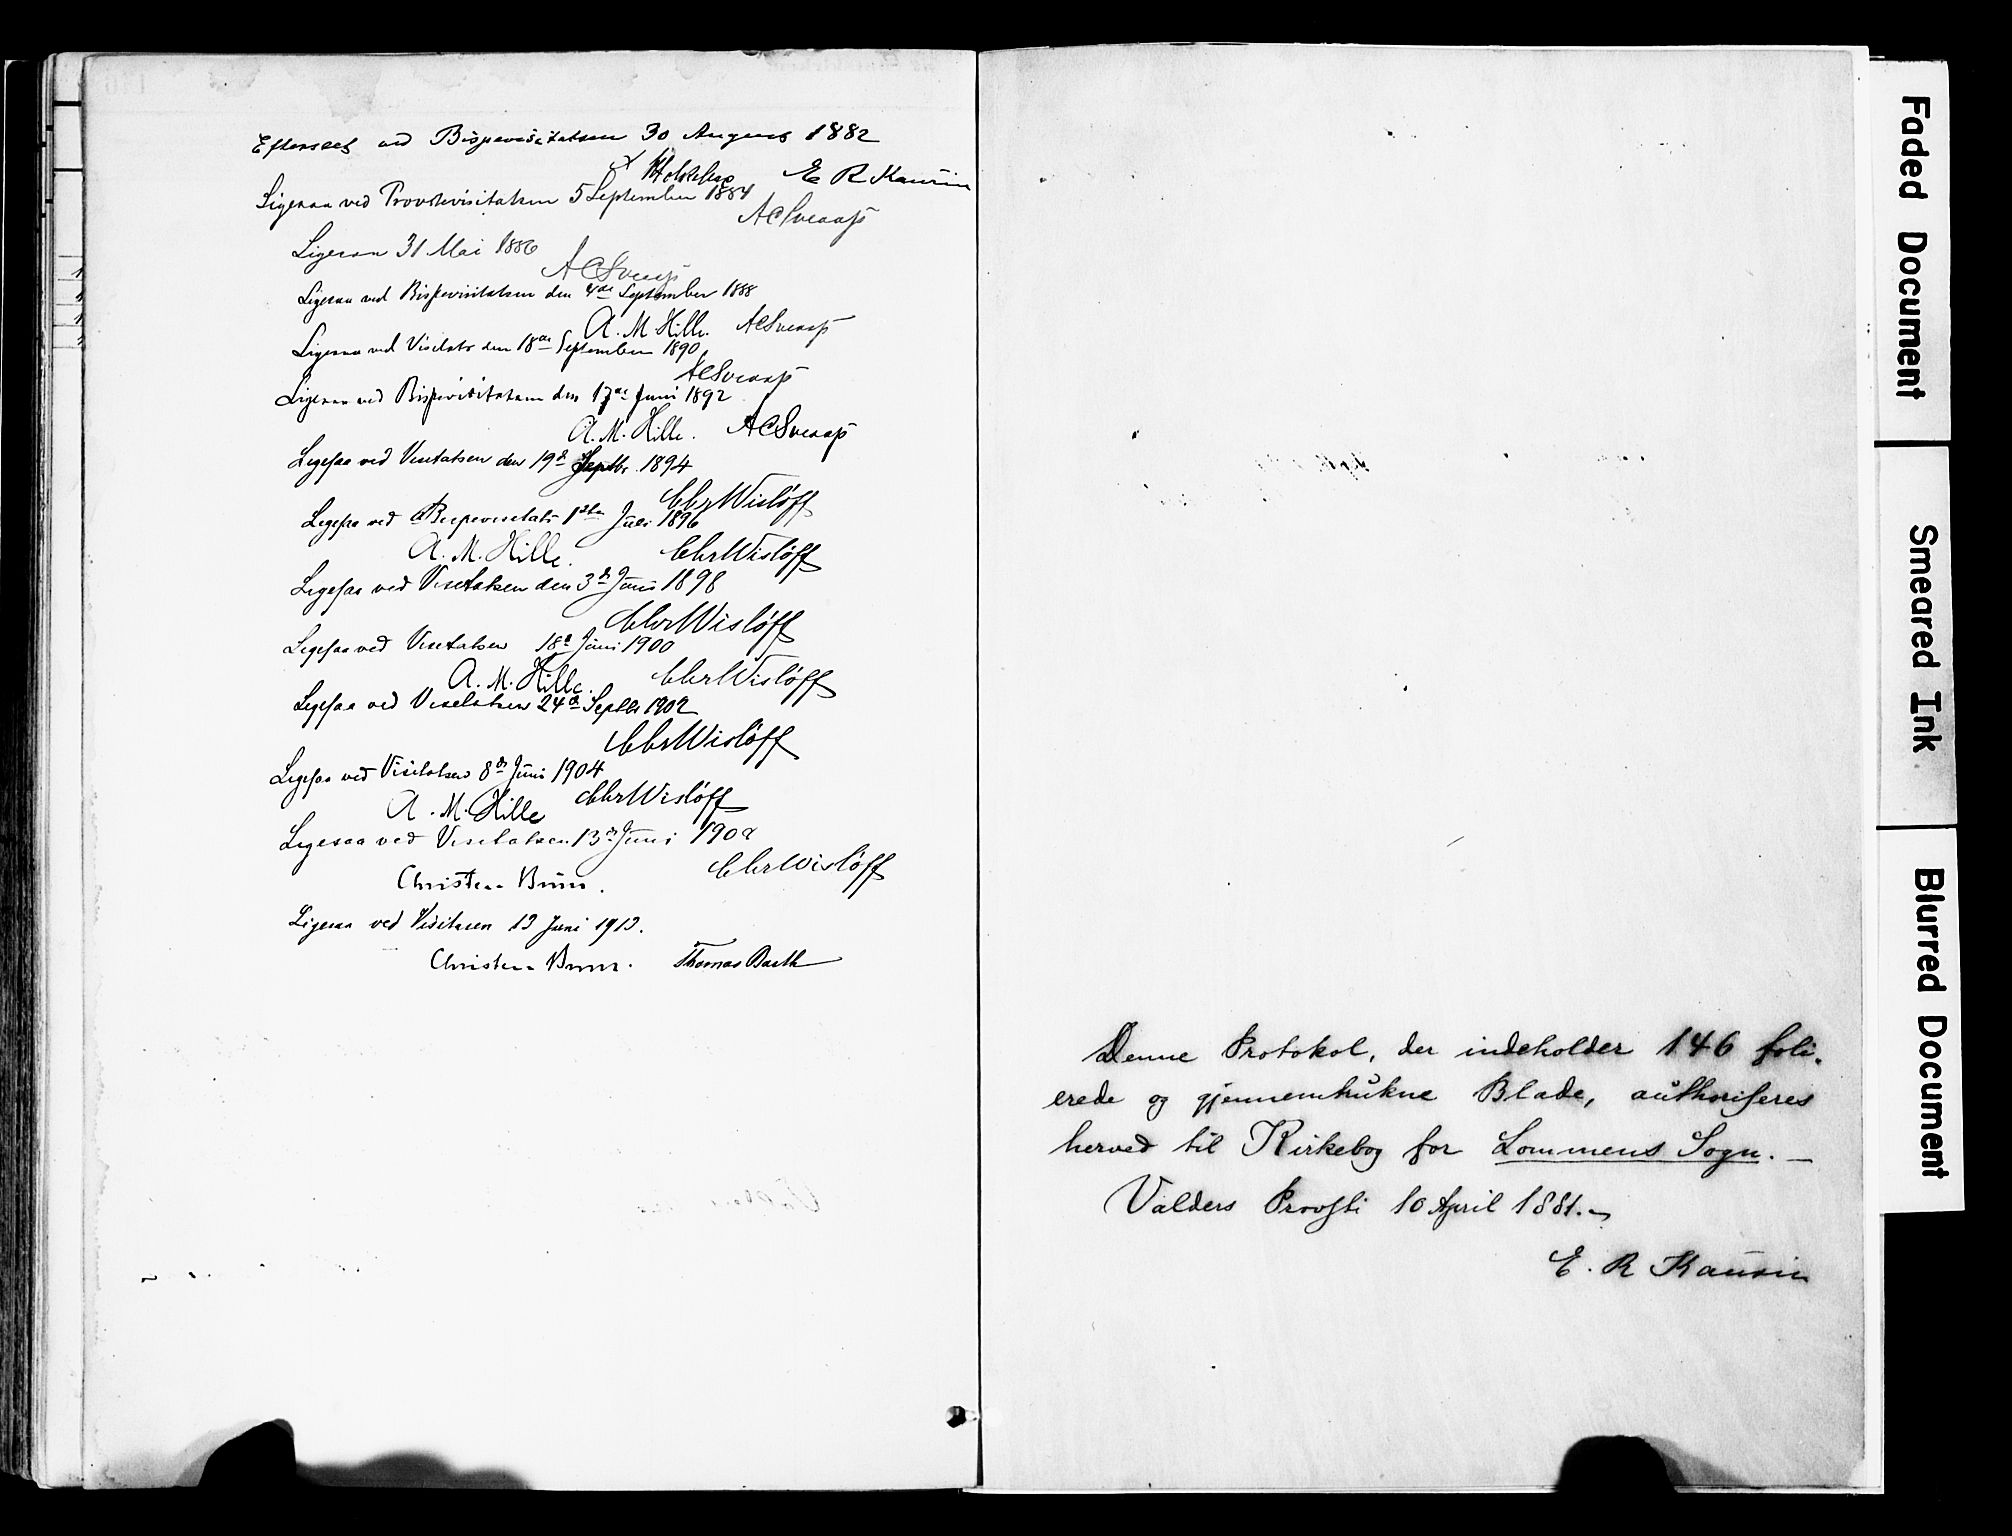 Efterseet ved Bispevisitatsen 30 August 1882
E R Kaurin
Ligesaa ved Provstevisitatsen 5 September 1884
A C Sveaas
Ligesaa 31 Mai 1886
A C Sveaas
Ligesaa ved Bispevisitatsen den 4de September 1888
A. M. Hille. A C Sveaas
Ligesaa ved Visitats den 18de September 1890
A C Sveaas
Ligesaa ved Bispevisitatsen den 17de Juni 1892
A. M. Hille. A C Sveaas
Ligesaa ved Visitatsen den 19d Septbr. 1894
Chr Wisløff
Ligesaa ved Bispevisitats 1ste Juli 1896
A. M. Hille. Chr Wisløff
Ligesaa ved Visitatsen den 3d Juni 1898
Chr Wisløff
Ligesaa ved Visitatsen 18d Juni 1900
A. M. Hille. Chr Wisløff
Ligesaa ved Visitatsen 24d Septbr 1902
Chr Wisløff
Ligesaa ved Visitatsen 8d Juni 1904
A. M. Hille Chr Wisløff
Ligesaa ved Visitatsen 13d Juni
Chr Wisløff
Christen Brun.
Ligesaa ved Visitasen 13 Juni 1913.
Christen Brun. Thomas Barth
Denne Protokol, der indeholder 146 foli-
erede og gjennemtrukne Blade, authoriseres
herved til Kirkebog for Lommens Sogn. —
Valders Provsti 10 April 1881. —
E. R Kaurin
Faded Document
Smeared Ink
Blurred Document